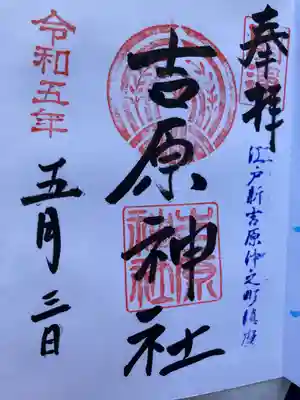 奉拝
江戸新吉原仲之町鎮座
吉原神社
令和五年
五月三日